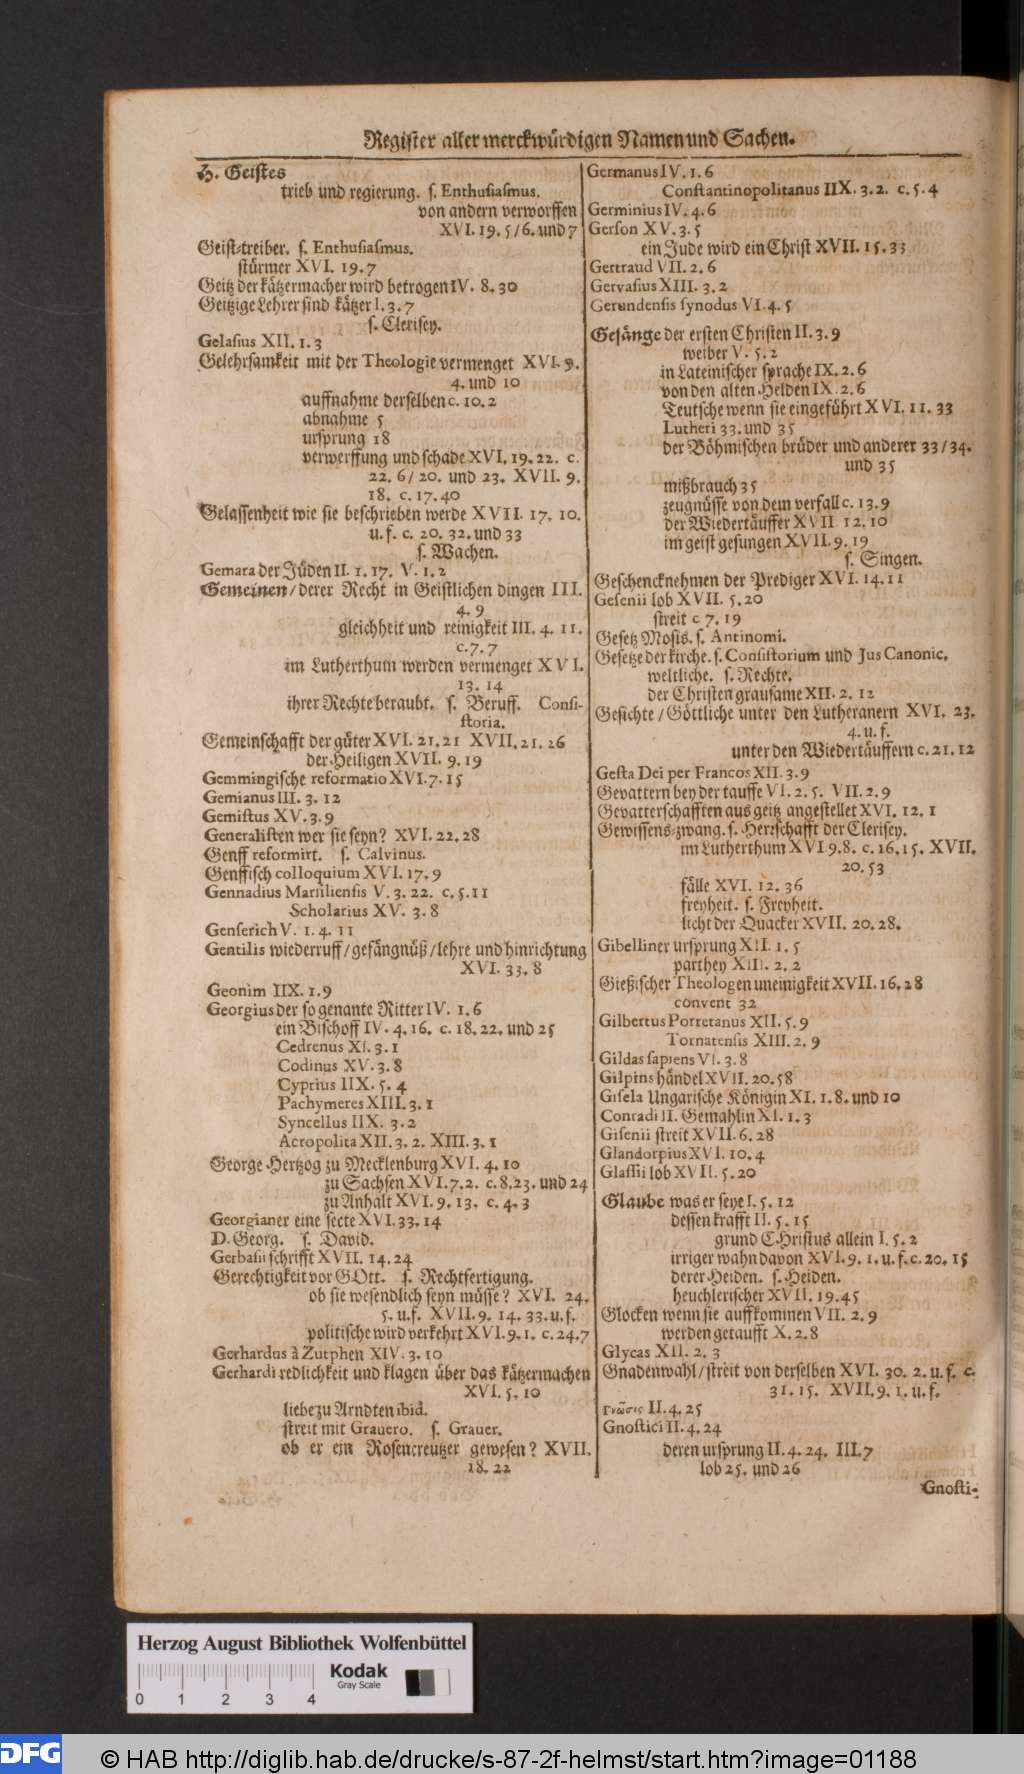 Register aller merckwürdigen Namen und Sachen.
H. Geistes
trieb und regierung. s. Enthusiasmus.
von andern verworffen
XVI. 19. 5/6. und 7
Geist-treiber. s. Enthusiasmus.
stürmer XVI. 19. 7
Geitz der kätzermacher wird betrogen IV. 8. 30
Geitzige Lehrer sind kätzer I. 3. 7
s. Clerisey.
Gelasius XII. 1. 3
Gelehrsamkeit mit der Theologie vermenget XVI. 9.
4. und 10
auffnahme derselben c. 10. 2
abnahme 5
ursprung 18
verwerffung und schade XVI. 19. 22. c.
22. 6/20. und 23. XVII. 9.
18. c. 17. 40
Gelassenheit wie sie beschrieben werde XVII. 17. 10.
u. f. c. 20. 32. und 33
s. Wachen.
Gemara der Jüden II. 1. 17. V. 1. 2
Gemeinen/derer Recht in Geistlichen dingen III.
4. 9
gleichheit und reinigkeit III. 4. 11.
c. 7. 7
im Lutherthum werden vermenget XVI.
13. 14
ihrer Rechte beraubt. s. Beruff. Consi-
storia.
Gemeinschafft der güter XVI. 21. 21 XVII. 21. 26
der Heiligen XVII. 9. 19
Gemmingische reformatio XVI. 7. 15
Gemianus III. 3. 12
Gemistus XV. 3. 9
Generalisten wer sie seyn? XVI. 22. 28
Genff reformirt. s. Calvinus.
Genffisch colloquium XVI. 17. 9
Gennadius Marsiliensis V. 3. 22. c. 5. 11
Scholarius XV. 3. 8
Genserich V. 1. 4. 11
Gentilis wiederruff/gefängnüß/lehre und hinrichtung
XVI. 33. 8
Geonim IIX. 1. 9
Georgius der so genante Ritter IV. 1. 6
ein Bischoff IV. 4. 16. c. 18. 22. und 25
Cedrenus XI. 3. 1
Codinus XV. 3. 8
Cyprius IIX. 5. 4
Pachymeres XIII. 3. 1
Syncellus IIX. 3. 2
Acropolita XII. 3. 2. XIII. 3. 1
George Hertzog zu Mecklenburg XVI. 4. 10
zu Sachsen XVI. 7. 2. c. 8. 23. und 24
zu Anhalt XVI. 9. 13. c. 4. 3
Georgianer eine secte XVI. 33. 14
D. Georg. s. David.
Gerbasii schrifft XVII. 14. 24
Gerechtigkeit vor GOtt. s. Rechtfertigung.
ob sie wesendlich seyn müsse? XVI. 24.
5. u. f. XVII. 9. 14. 33. u. f.
politische wird verkehrt XVI. 9. 1. c. 24. 7
Gerhardus à Zutphen XIV. 3. 10
Gerhardi redlichkeit und klagen über das kätzermachen
XVI. 5. 10
liebe zu Arndten ibid.
streit mit Grauero. s. Grauer.
ob er ein Rosencreutzer gewesen? XVII.
18. 22
Germanus IV. 1. 6
Constantinopolitanus IIX. 3. 2. c. 5. 4
Germinius IV. 4. 6
Gerson XV. 3. 5
ein Jude wird ein Christ XVII. 15. 33
Gertraud VII. 2. 6
Gervasius XIII. 3. 2
Gerundensis synodus VI. 4. 5
Gesänge der ersten Christen II. 3. 9
weiber V. 5. 2
in Lateinischer sprache IX. 2. 6
von den alten Helden IX. 2. 6
Teutsche wenn sie eingeführt XVI. 11. 33
Lutheri 33. und 35
der Böhmischen brüder und anderer 33/34.
und 35
mißbrauch 35
zeugnüsse von dem verfall c. 13. 9
der Wiedertäuffer XVII. 12. 10
im geist gesungen XVII. 9. 19
s. Singen.
Geschencknehmen der Prediger XVI. 14. 11
Gesenii lob XVII. 5. 20
streit c 7. 19
Gesetz Mosis. s. Antinomi.
Gesetze der kirche. s. Consistorium und Jus Canonic.
weltliche. s. Rechte.
der Christen grausame XII. 2. 12
Gesichte/Göttliche unter den Lutheranern XVI. 23.
4. u. f.
unter den Wiedertäuffern c. 21. 12
Gesta Dei per Francos XII. 3. 9
Gevattern bey der tauffe VI. 2. 5. VII. 2. 9
Gevatterschafften aus geitz angestellet XVI. 12. 1
Gewissens-zwang. s. Herrschafft der Clerisey.
im Lutherthum XVI 9. 8. c. 16. 15. XVII.
20. 53
fälle XVI. 12. 36
freyheit. s. Freyheit.
licht der Quacker XVII. 20. 28.
Gibelliner ursprung XII. 1. 5
parthey XIII. 2. 2
Gießischer Theologen uneinigkeit XVII. 16. 28
convent 32
Gilbertus Porretanus XII. 5. 9
Tornatensis XIII. 2. 9
Gildas sapiens VI. 3. 8
Gilpins händel XVII. 20. 58
Gisela Ungarische Königin XI. 1. 8. und 10
Conradi II. Gemahlin XI. 1. 3
Gisenii streit XVII. 6. 28
Glandorpius XVI. 10. 4
Glassii lob XVII. 5. 20
Glaube was er seye I. 5. 12
dessen krafft II. 5. 15
grund CHristus allein I. 5. 2
irriger wahn davon XVI. 9. 1. u. f. c. 20. 15
derer Heiden. s. Heiden.
heuchlerischer XVII. 19. 45
Glocken wenn sie auffkommen VII. 2. 9
werden getaufft X. 2. 8
Glycas XII. 2. 3
Gnadenwahl/streit von derselben XVI. 30. 2. u. f. c.
31. 15. XVII. 9. 1. u. f.
Γνῶσις II. 4. 25
Gnostici II. 4. 24
deren ursprung II. 4. 24. III. 7
lob 25. und 26
Gnosti-
Herzog August Bibliothek Wolfenbüttel
Kodak
Gray Scale
0 1 2 3 4
DFG
© HAB http://diglib.hab.de/drucke/s-87-2f-helmst/start.htm?image=01188